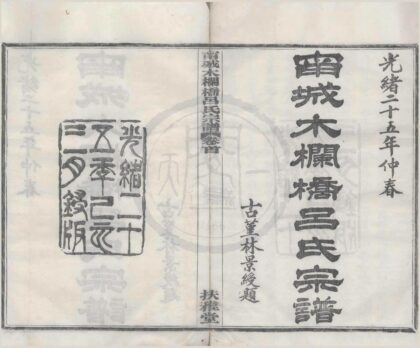 光緒二十五年仲春
南城木欄橋呂氏宗譜
古堇林景綬題
南城木欄橋呂氏宗譜卷首
扶雅堂
光緒二十
五年己亥
三月鋟版